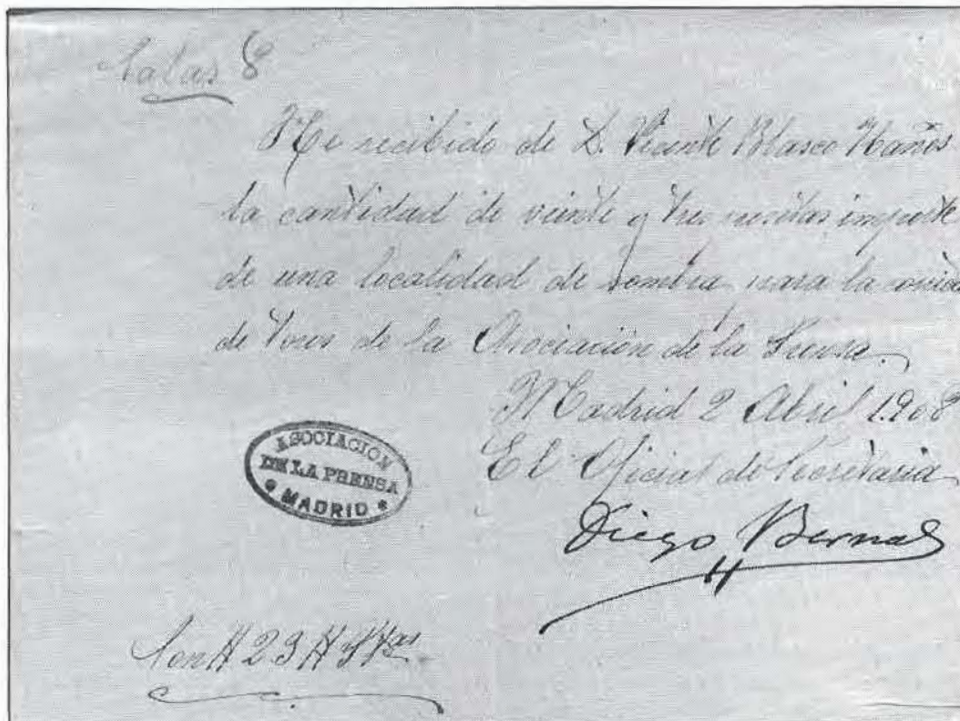 Salas 8
He recibido de D. Vicente Blasco Ibañes
la cantidad de veinte y tres pesetas importe
de una localidad de sombra para la corrida
de toros de la Asociación de la Prensa.
Madrid 2 Abril 1908
El Oficial de Secretaria
Diego Bernal
ASOCIACION
DE LA PRENSA
MADRID
Son # 23 # Ptas